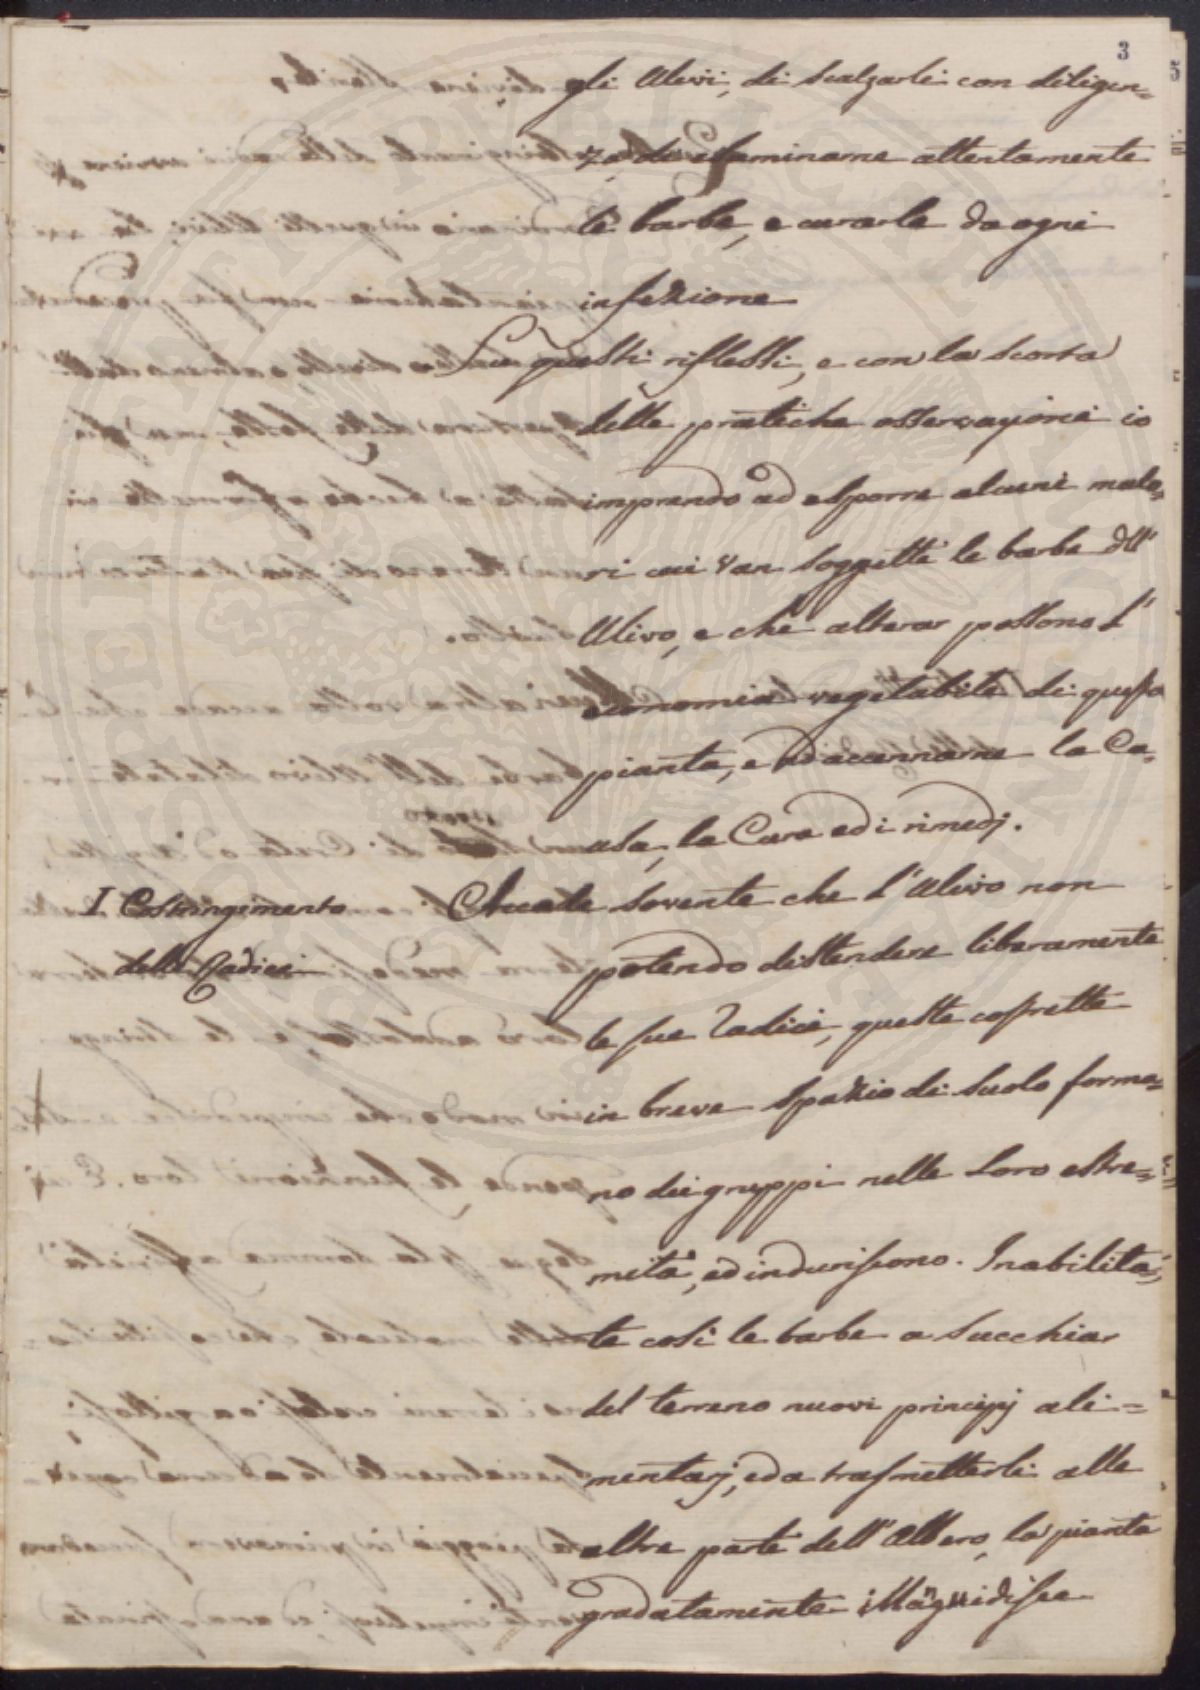 3
gli Ulivi, di scalzarli con diligen=
za, di esaminarne attentamente
le barbe, e curarle da ogni
infezione
Su questi riflessi, e con la scorta
delle pratiche osservazioni io
imprendo ad esporre alcuni malo=
ri cui van soggette le barbe dll'
Ulivo, e che alterar possono l'
economia vegetabile di questa
pianta, e ad accennarne la Ca=
usa, la Cura ed i rimedj.
I Costringimento
delle Radici
Accade sovente che l'Ulivo non
potendo distendere liberamente
le sue Radici, queste costrette
in breve spazio di suolo forma=
no dei gruppi nelle loro estre=
mità, ed induriscono. Inabilita=
te così le barbe a succhiar
del terreno nuovi principj ali=
mentarj, ed a trasmetterli alle
altre parte dell'Albero, la pianta
gradatamente